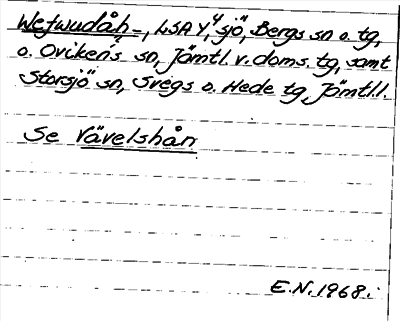 Wefwudåh, LSA Y,4 sjö, Bergs sn o. tg,
o. Ovikens sn, Jämtl. v. doms. tg, samt
Storsjö sn, Svegs o. Hede tg Jämtl.l.
Se Vävelshån
E.N. 1968.